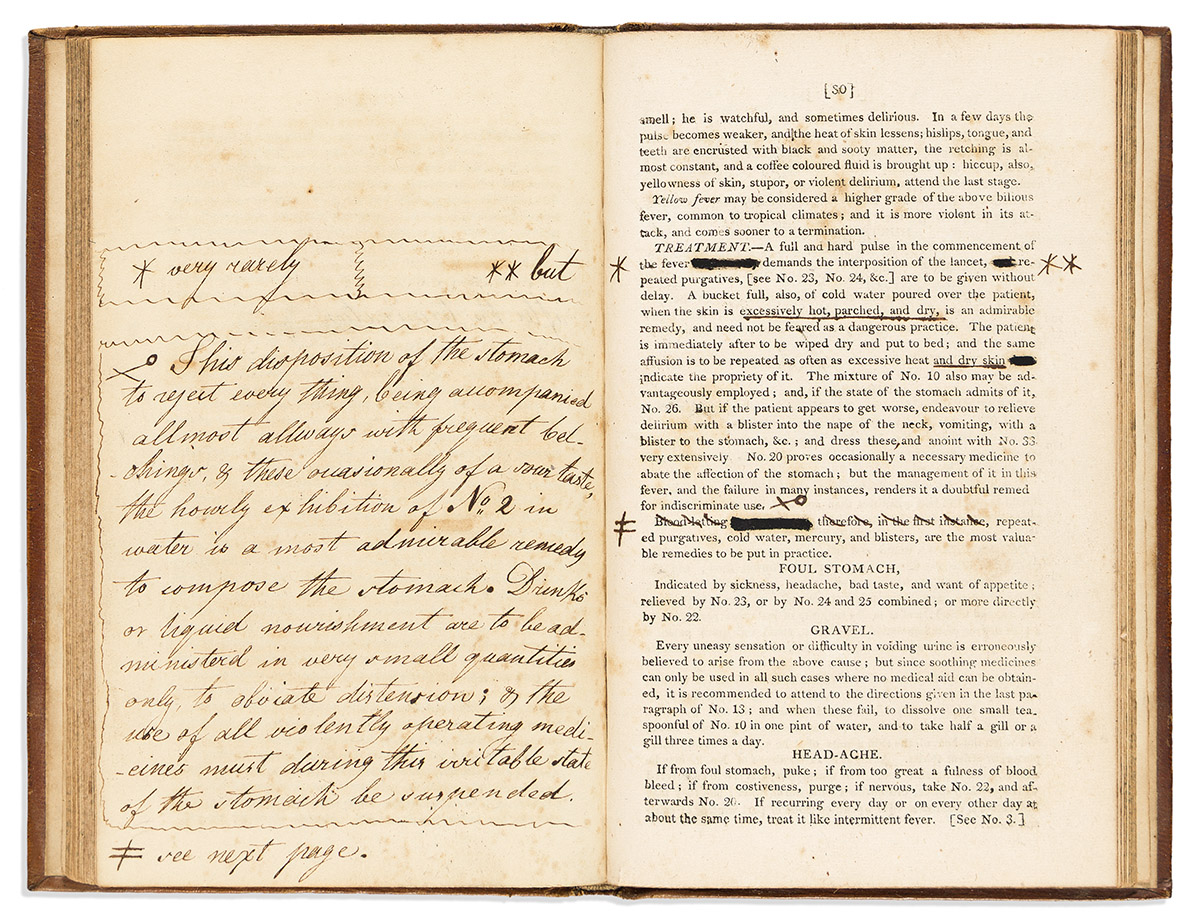 * very rarely ** but
This disposition of the stomach
to reject every thing, being accompanied
allmost allways with frequent bel-
-chings, & these ocasionally of a sour taste,
the hourly exhibition of No. 2 in
water is a most admirable remedy
to compose the stomach. Drinks
or liquid nourishment are to be ad-
ministerd in very small quantities
only, to obviate distension; & the
use of all violently operating medi-
-cines must during this irritable state
of the stomach be suspended.
ǂ see next page.
[80]
smell; he is watchful, and sometimes delirious. In a few days the
pulse becomes weaker, and the heat of skin lessens; his lips, tongue, and
teeth are encrusted with black and sooty matter, the retching is al-
most constant, and a coffee coloured fluid is brought up: hiccup, also,
yellowness of skin, stupor, or violent delirium, attend the last stage.
Yellow fever may be considered a higher grade of the above bilious
fever, common to tropical climates; and it is more violent in its at-
tack, and comes sooner to a termination.
TREATMENT.—A full and hard pulse in the commencement of
* the fever demands the interposition of the lancet, re- **
peated purgatives, [see No. 23, No. 24, &c.] are to be given without
delay. A bucket full, also, of cold water poured over the patient,
when the skin is excessively hot, parched, and dry, is an admirable
remedy, and need not be feared as a dangerous practice. The patient
is immediately after to be wiped dry and put to bed; and the same
affusion is to be repeated as often as excessive heat and dry skin
indicate the propriety of it. The mixture of No. 10 also may be ad-
vantageously employed; and, if the state of the stomach admits of it,
No. 26. But if the patient appears to get worse, endeavour to relieve
delirium with a blister into the nape of the neck, vomiting, with a
blister to the stomach, &c.; and dress these, and anoint with No. 33
very extensively No. 20 proves occasionally a necessary medicine to
abate the affection of the stomach; but the management of it in this
fever, and the failure in many instances, renders it a doubtful remed
for indiscriminate use.
ǂ Blood-letting therefore, in the first instance, repeat-
ed purgatives, cold water, mercury, and blisters, are the most valua-
ble remedies to be put in practice.
FOUL STOMACH,
Indicated by sickness, headache, bad taste, and want of appetite;
relieved by No. 23, or by No. 24 and 25 combined; or more directly
by No. 22.
GRAVEL.
Every uneasy sensation or difficulty in voiding urine is erroneously
believed to arise from the above cause; but since soothing medicines
can only be used in all such cases where no medical aid can be obtain-
ed, it is recommended to attend to the directions given in the last pa-
ragraph of No. 13; and when these fail, to dissolve one small tea-
spoonful of No. 10 in one pint of water, and to take half a gill or a
gill three times a day.
HEAD-ACHE.
If from foul stomach, puke; if from too great a fulness of blood
bleed; if from costiveness, purge; if nervous, take No. 22, and af-
terwards No. 20. If recurring every day or on every other day at
about the same time, treat it like intermittent fever. [See No. 3.]